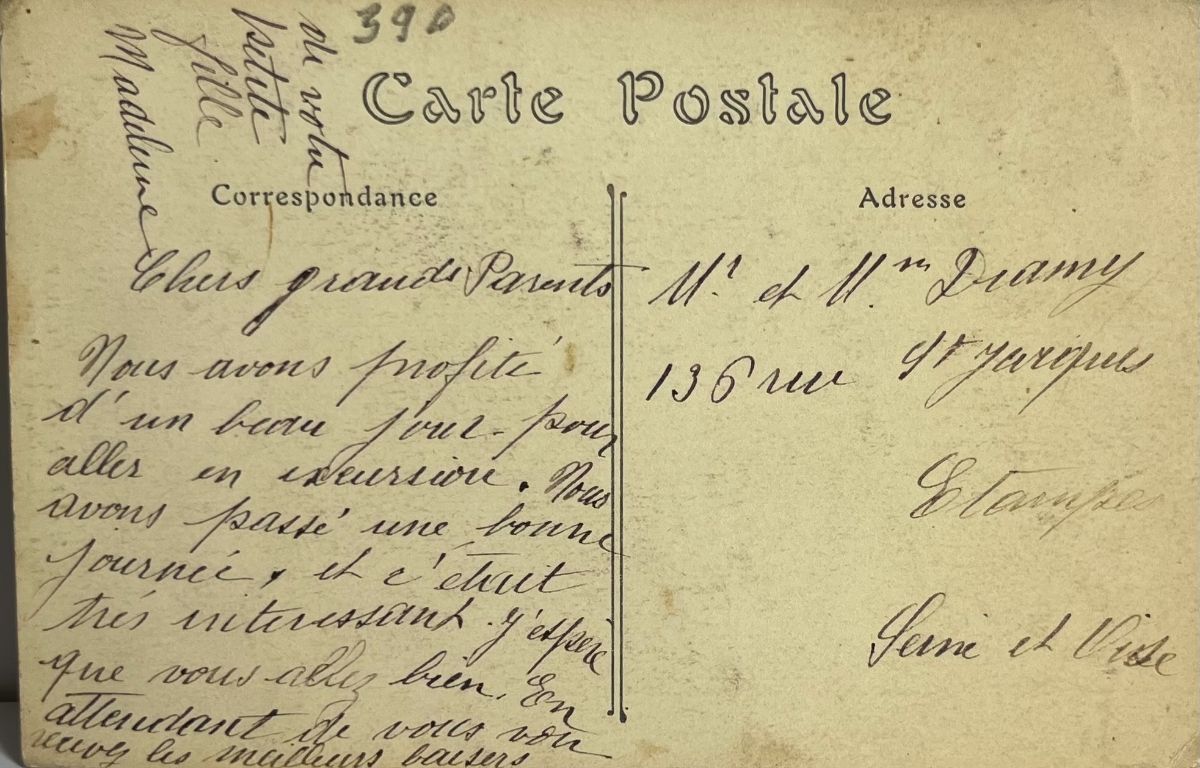 390
Carte Postale
Correspondance
Chers grands Parents
Nous avons profité
d'un beau jour pour
aller en excursion. Nous
avons passé une bonne
journée, et c'était
très interessant. J'espère
que vous allez bien. En
attendant de vous voir
recevez les meilleurs baisers
de votre
petite
fille
Madeleine
Adresse
Mr et Mm Dramy
136 rue St Jacques
Etampes
Seine et Oise